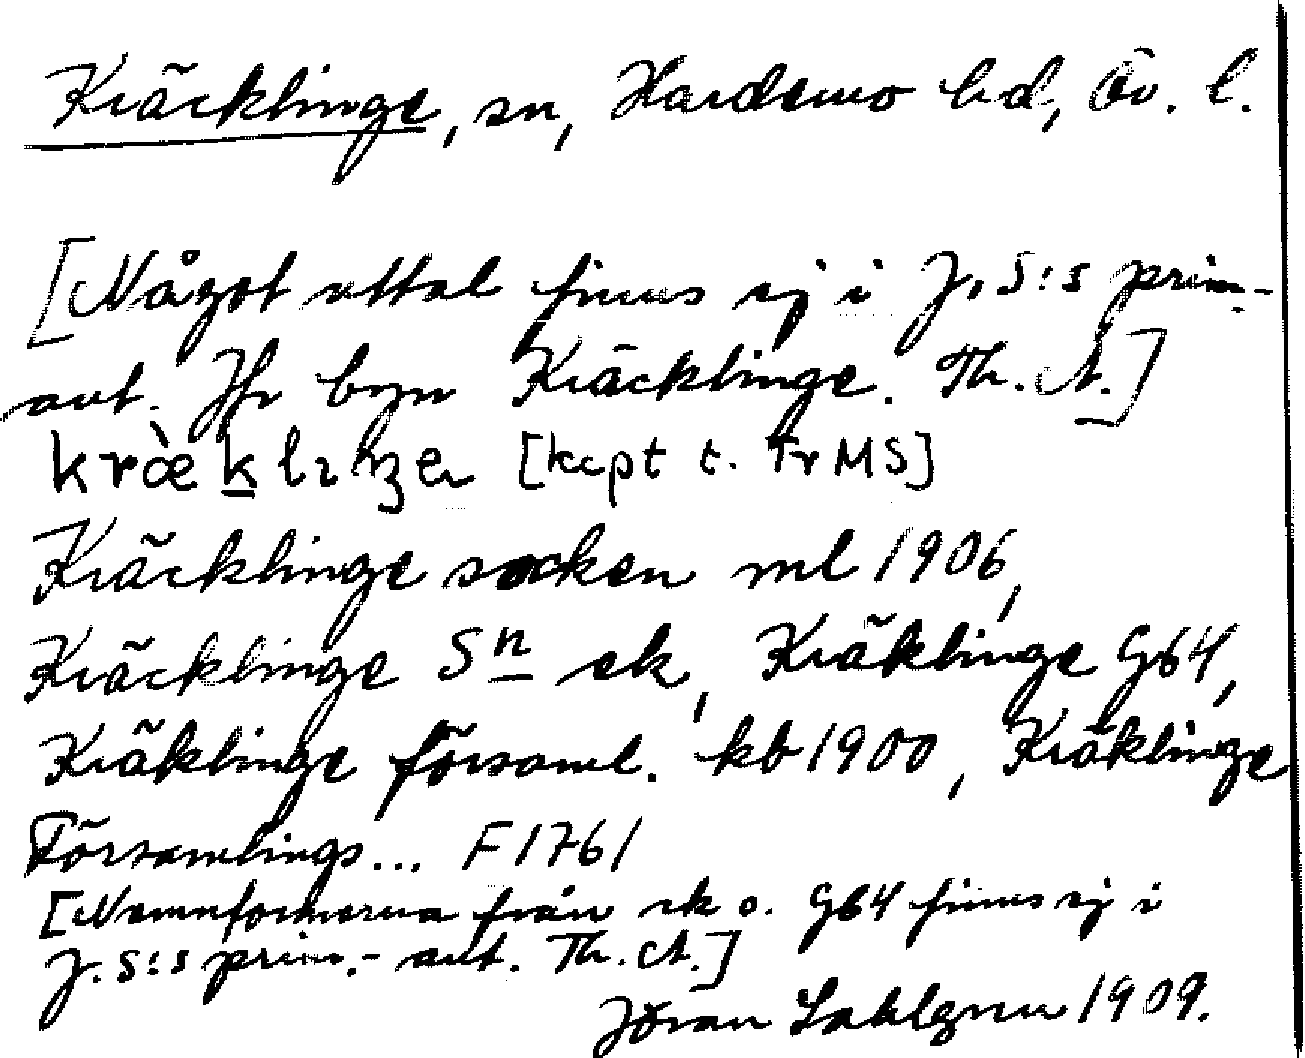 Kräcklinge, sn, Hardemo hd, Ör. l.
[Något uttal finns ej i J. S:s prim.-
ant. Jfr byn Kräcklinge. Th. A.]
kræ̀k̠lıŋeı [kcpt t. FrMS]
Kräcklinge socken ml 1906,
Kräcklinge Sn ek, Kräklinge G64,
Kräklinge församl. kb 1900, Kräklinge
Församlings... F 1761
[Namnformerna från ek o. G64 finns ej i
J. S:s prim.- ant. Th. A.]
Jöran Sahlgren 1909.